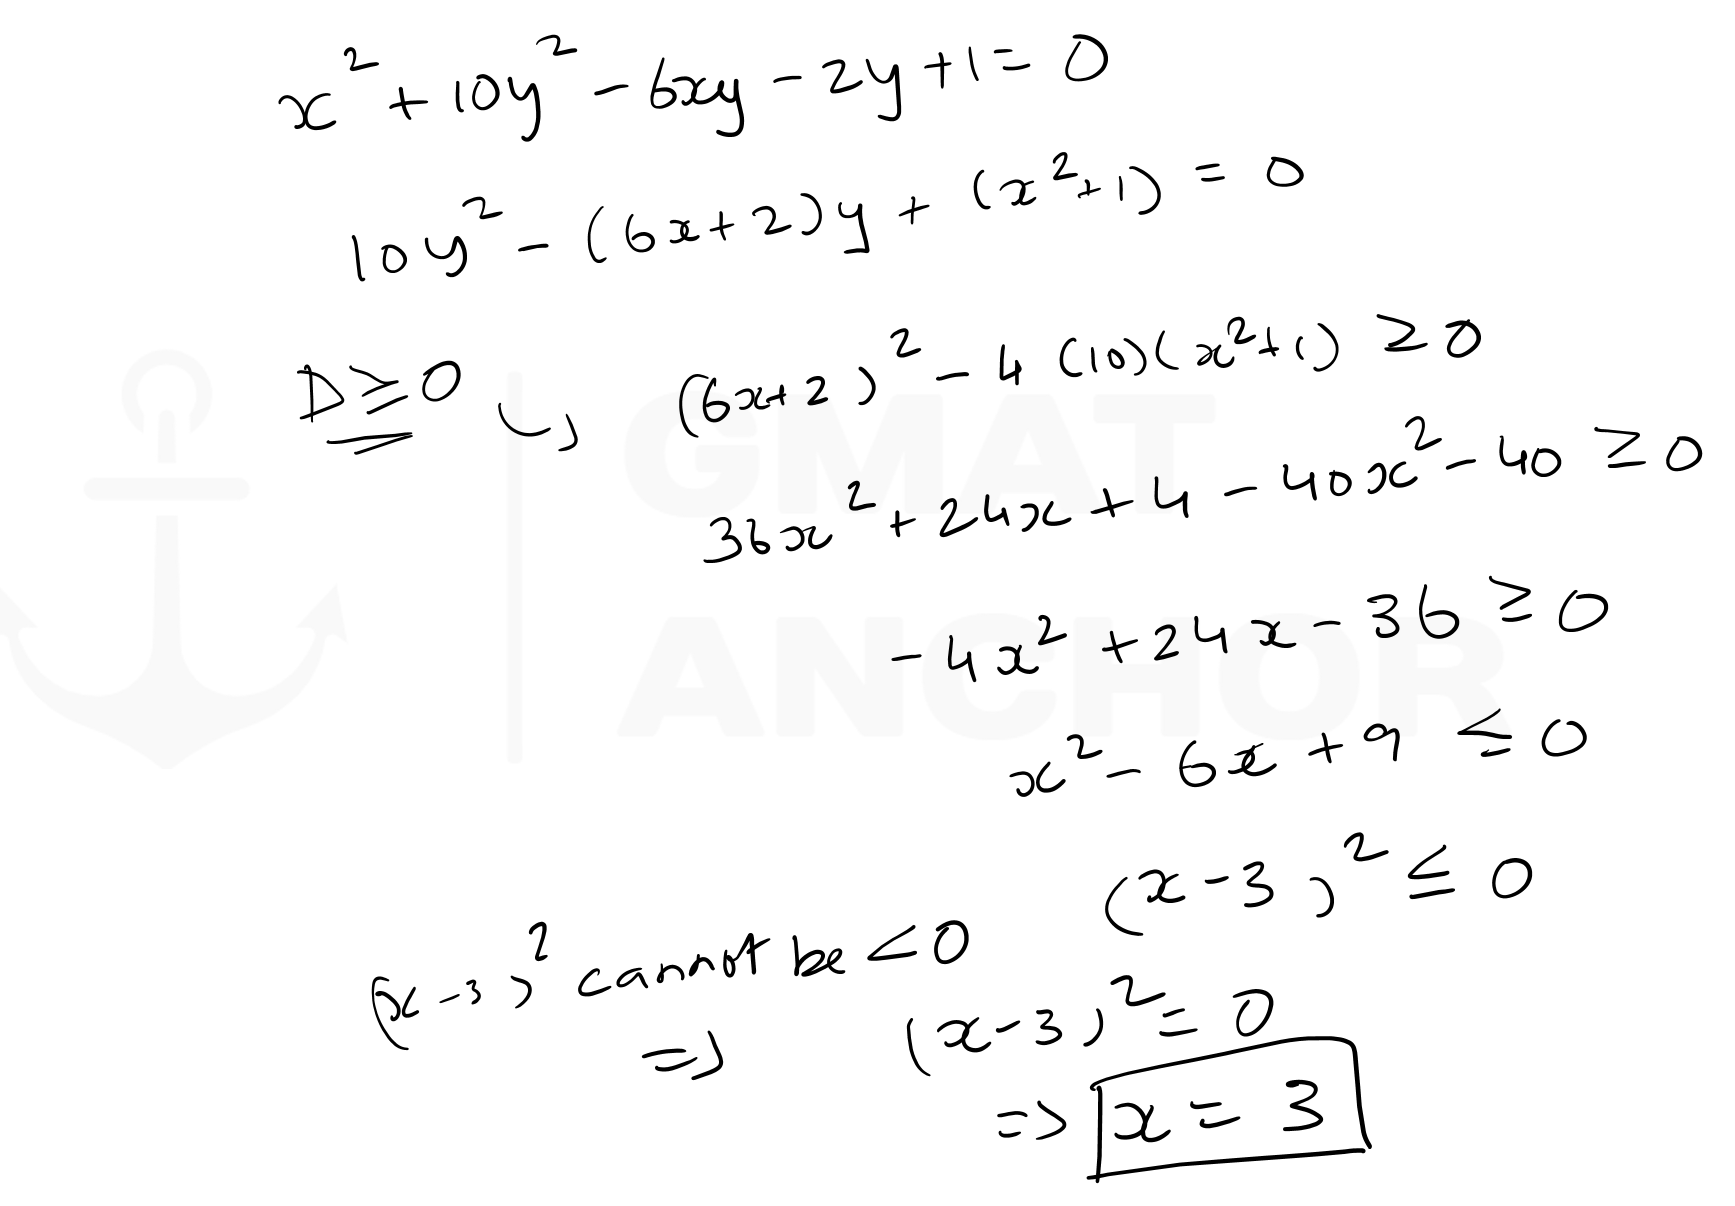 x² + 10y² - 6xy - 2y + 1 = 0
10y² - (6x + 2)y + (x² + 1) = 0
D ≥ 0 ↪ (6x + 2)² - 4 (10)(x² + 1) ≥ 0
36x² + 24x + 4 - 40x² - 40 ≥ 0
-4x² + 24x - 36 ≥ 0
x² - 6x + 9 ≤ 0
(x - 3)² ≤ 0
(x - 3)² cannot be < 0
⇒ (x - 3)² = 0
⇒ x = 3
GMAT
ANCHOR